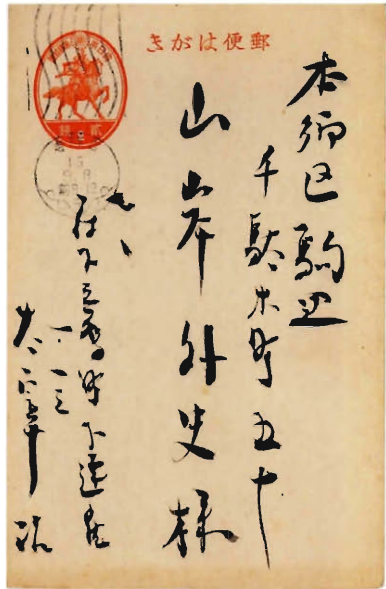 郵便はがき
本郷区駒込
千駄木町五十
山岸外史様
府下三鷹町下連雀
一一三
太宰治